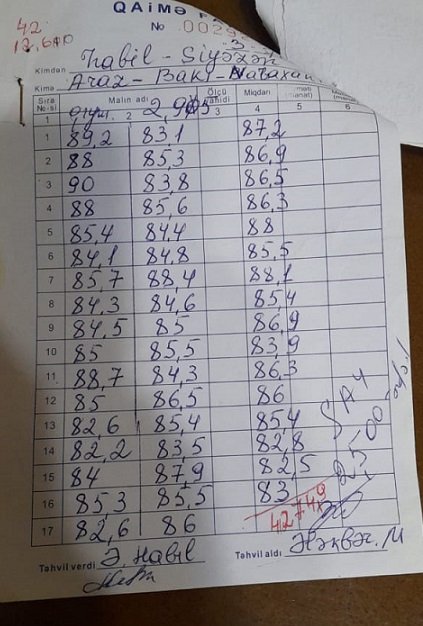 42
12,600
QAİMƏ
№ 0029
Kimdən Habil - Siyəzən
Kimə Araz - Bakı -
Sıra №-si Malın adı 2,905 Ölçü Miqdarı
1 2 3 4 5 6
1 89,2 83,1 87,2
2 88 85,3 86,9
3 90 83,8 86,5
4 88 85,6 86,3
5 85,4 84,4 88
6 84,1 84,8 85,5
7 85,7 88,4 88,1
8 84,3 84,6 85,4
9 84,5 85 86,9
10 85 85,5 83,9
11 88,7 84,3 86,3
12 85 86,5 86
13 82,6 85,4 85,4
14 82,2 83,5 82,8
15 84 87,9 82,5
16 85,3 85,5 83
17 82,6 86
42749
SAY
Təhvil verdi Ə. Habil Təhvil aldı Ələkbər. M